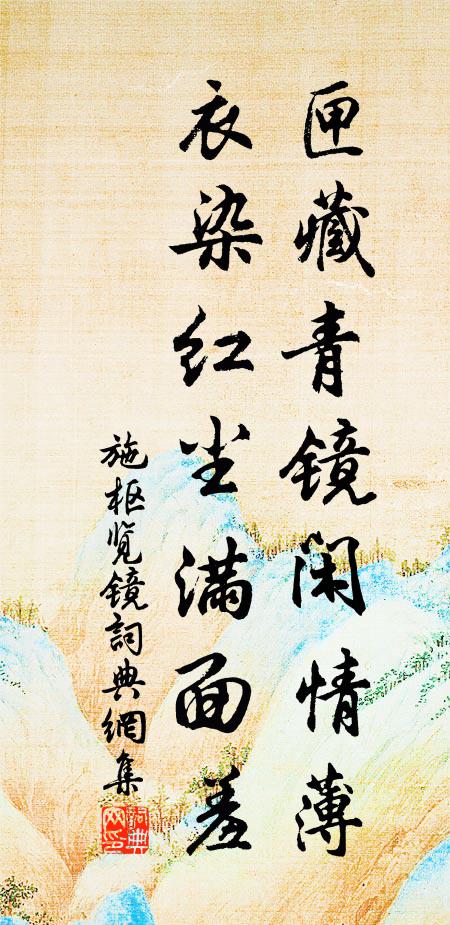 匣藏青镜闲情薄
衣染红尘满面羞
施枢览镜詞典網集
詞典网印